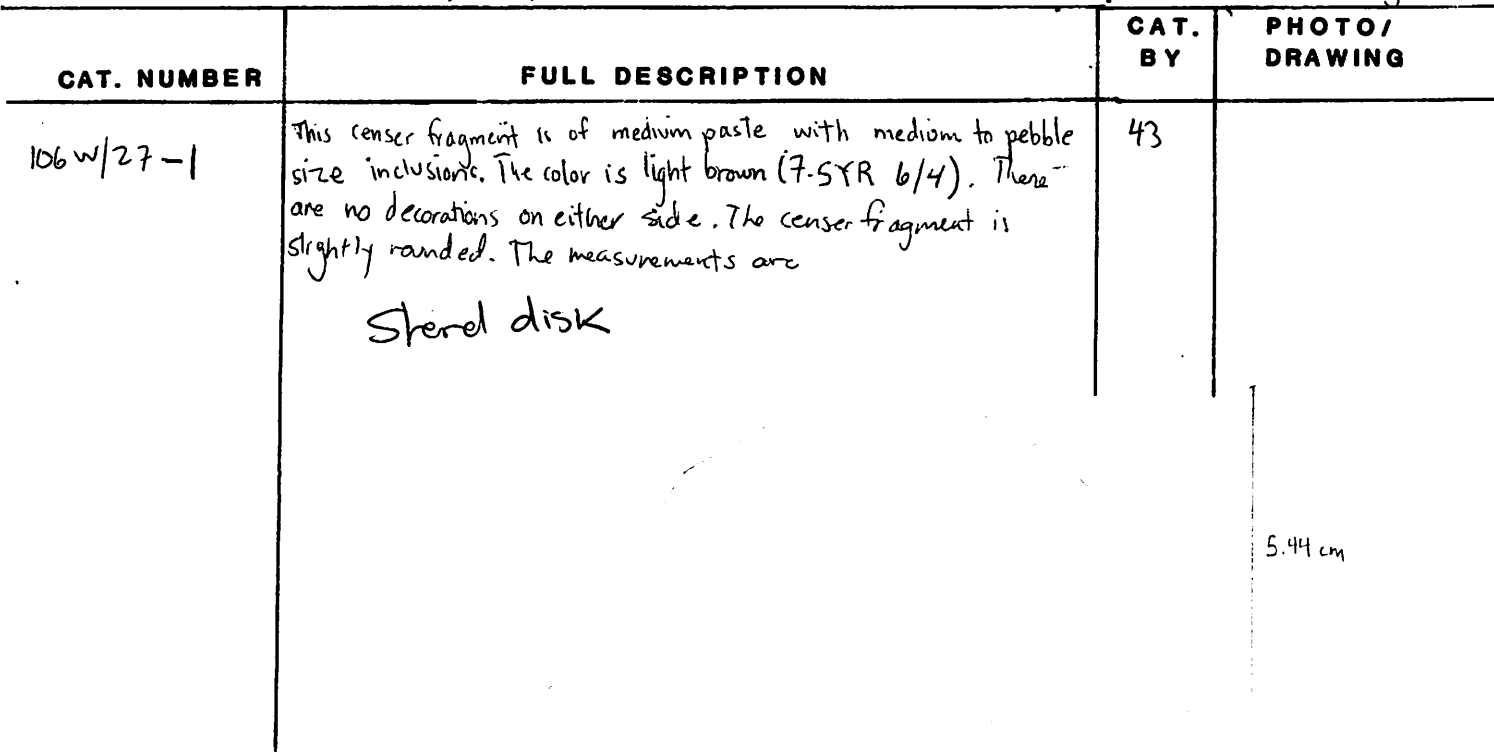 CAT. NUMBER
FULL DESCRIPTION
CAT. BY
PHOTO/ DRAWING
106 W/27-1
This censer fragment is of medium paste with medium to pebble
size inclusions. The color is light brown (7.5YR 6/4). There
are no decorations on either side. The censer fragment is
slightly rounded. The measurements are
Sherd disk
43
5.44 cm